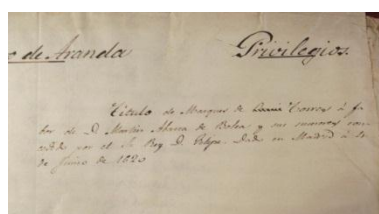 o de Aranda
Privilegios.
Titulo de Marques de Torres à fa-
bor de D. Martin Abarca de Bolea y sus sucesores con-
cedido por el Sr. Rey D. Felipe. Dado en Madrid à
de Junio de 1620